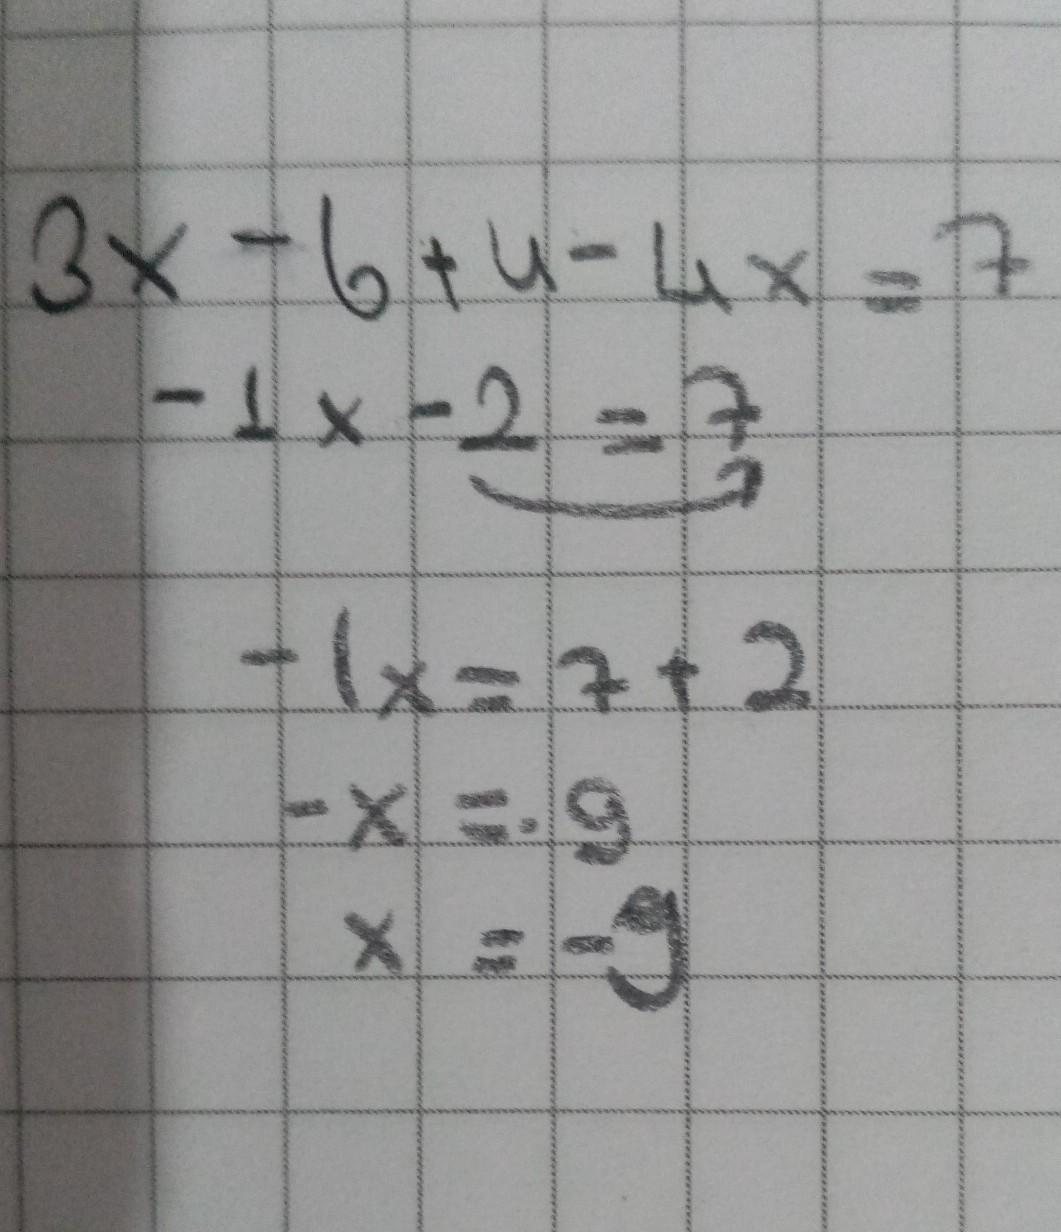 3x - 6 + 4 - 4x = 7
-1x - 2 = 7
-1x = 7 + 2
-x = 9
x = -9